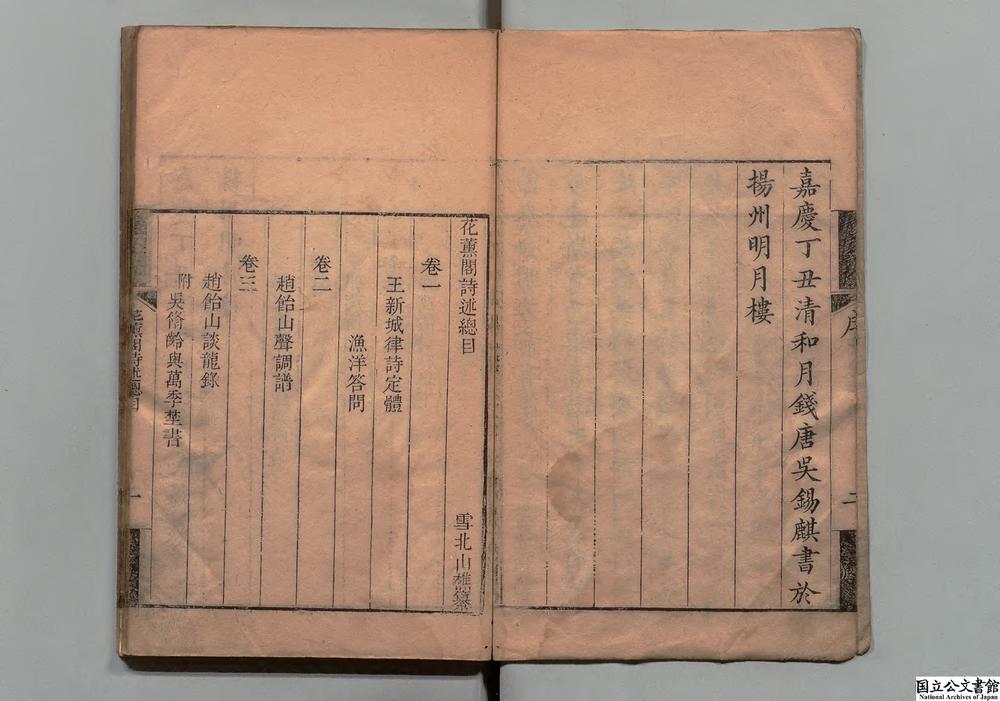 嘉慶丁丑清和月錢唐吳錫麒書於
揚州明月樓
序
二
花薰閣詩述總目
雪北山樵
卷一
王新城律詩定體
漁洋答問
卷二
趙飴山聲調譜
卷三
趙飴山談龍錄
附吳脩齡與萬季埜書
花薰閣詩述總目
一
国立公文書館
National Archives of Japan